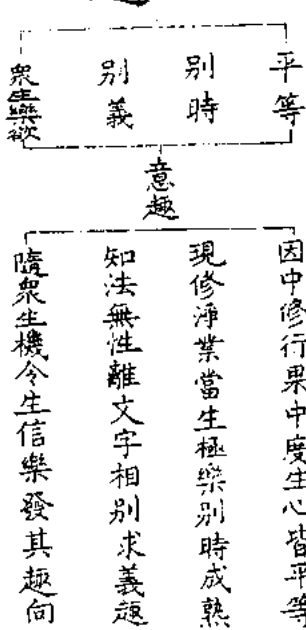 平等
別時
別義
衆生樂欲
意趣
因中修行果中度生心皆平等
現修淨業當生極樂別時成熟
知法無性離文字相別求義趣
隨衆生機令生信樂發其趣向